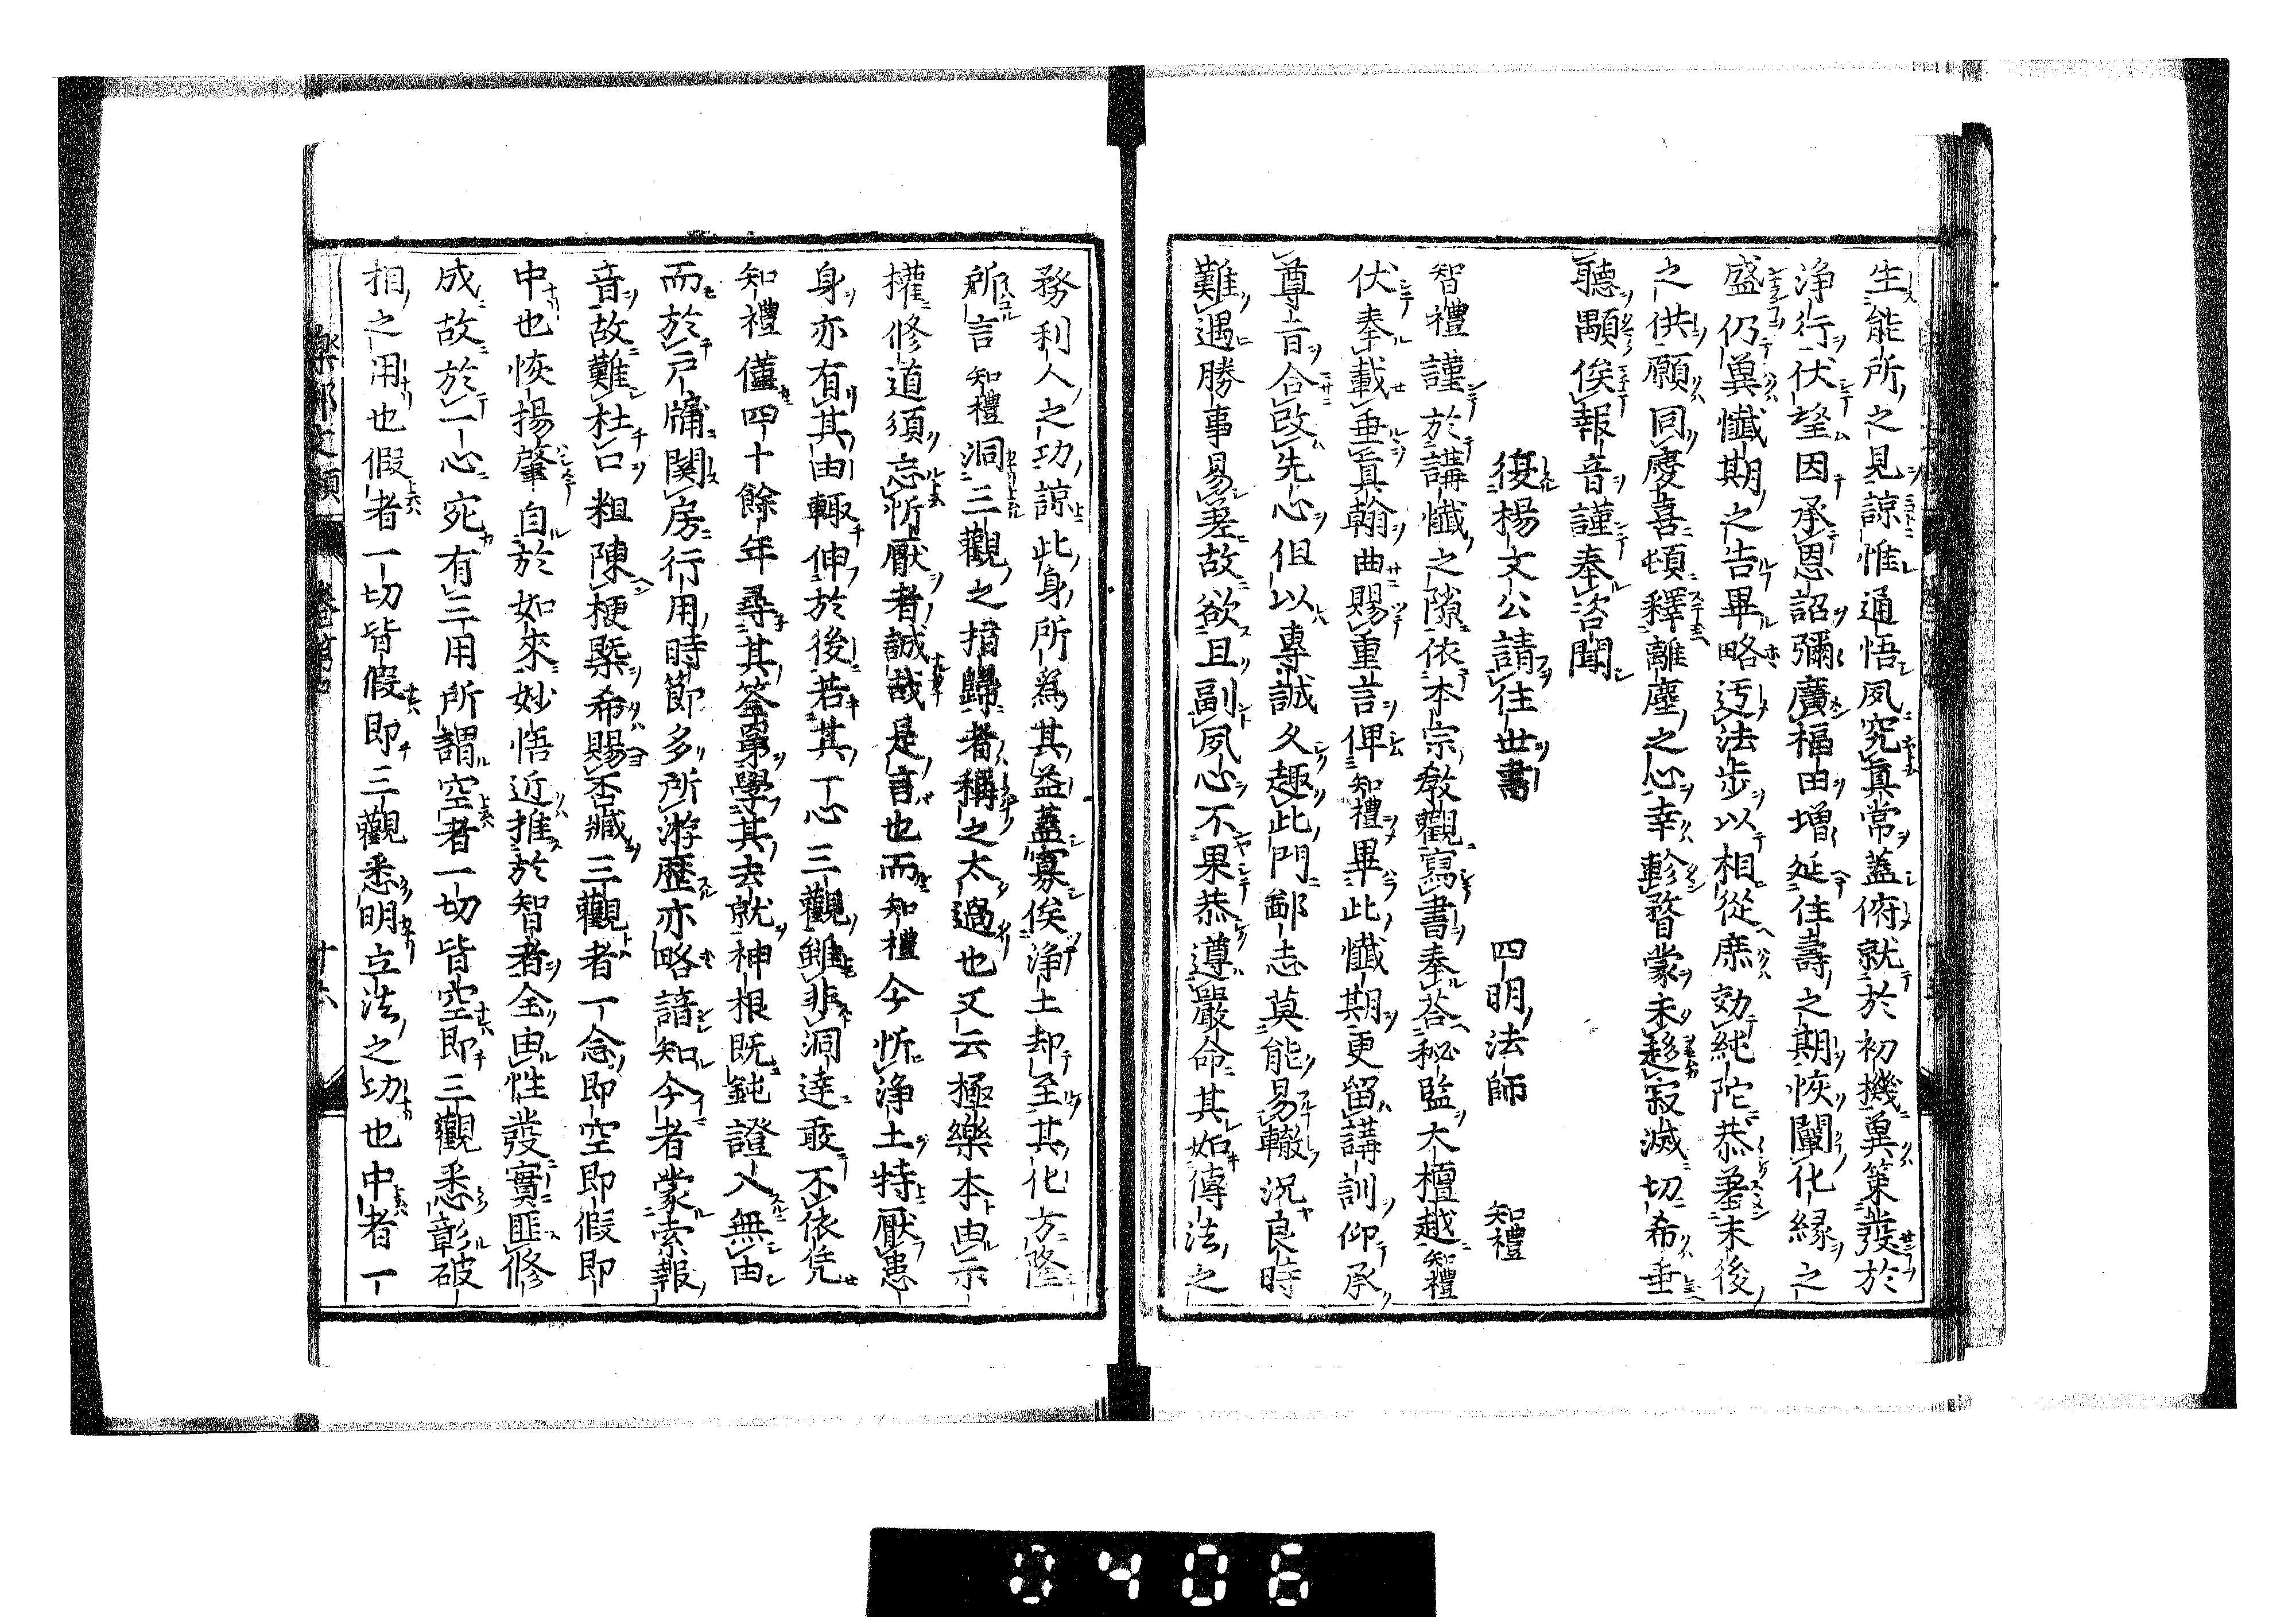 生能所之見諒惟通悟夙究眞常蓋俯就於初機冀策發於
淨行伏望因承恩詔彌廣福由增延住壽之期恢闡化緣之
盛仍冀懺期之告畢略迂法步以相從庶効純陀恭羞末後
之供願同慶喜頓釋離塵之心幸軫瞀蒙未趍寂滅切希垂
聽顒俟報音謹奉咨聞
復楊文公請住世書　四明法師　知禮
智禮謹於講懺之隙依本宗教觀寫書奉荅秘監大檀越知禮
伏奉載垂眞翰曲賜重言俾知禮畢此懺期更留講訓仰承
尊旨合改先心但以專誠久趣此門鄙志莫能易轍況良時
難遇勝事易差故欲且副夙心不果恭遵嚴命其如傳法之
務利人之功諒此身所爲其益蓋寡俟淨土却至其化方隆
所言知禮洞三觀之指歸者稱之太過也又云極樂本由示
權修道須忘忻厭者誠哉是言也而知禮今忻淨土特厭患
身亦有其由輙伸於後若其一心三觀雖非洞達敢不依凭
知禮僅四十餘年尋其筌第學其去就神根既鈍證入無由
而於戶牖関房行用時節多所游歷亦略諳知今者蒙索報
音故難杜口粗陳梗槩希賜否臧三觀者一念即空即假即
中也恢揚肇自於如來妙悟近推於智者全由性發實匪修
成故於一心宛有三用所謂空者一切皆空即三觀悉彰破
相之用也假者一切皆假即三觀悉明立法之功也中者一
樂邦文類　卷第四　十六
0406